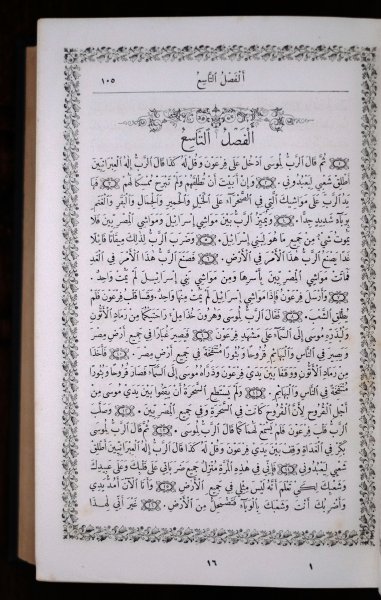 ١٠٥ اَلْفَصْلُ اَلتَّاسِعُ
اَلْفَصْلُ اَلتَّاسِعُ
ثُمَّ قَالَ اَلرَّبُّ لِمُوسَى اَدْخُلْ عَلَى فِرْعَوْنَ وَقُلْ لَهُ كَذَا قَالَ اَلرَّبُّ إِلٰهُ اَلْعِبْرَانِيِّينَ
أَطْلِقْ شَعْبِي لِيَعْبُدُونِي. وَإِنْ أَبَيْتَ أَنْ تُطْلِقَهُمْ وَلَمْ تَبْرَحْ مُمْسِكًا لَهُمْ فَهَا
يَدُ اَلرَّبِّ عَلَى مَوَاشِيكَ اَلَّتِي فِي اَلصَّحْرَاءِ عَلَى اَلْخَيْلِ وَاَلْحَمِيرِ وَاَلْجِمَالِ وَاَلْبَقَرِ وَاَلْغَنَمِ
بِوَبَاءٍ شَدِيدٍ جِدًّا. وَيُمَيِّزُ اَلرَّبُّ بَيْنَ مَوَاشِي إِسْرَائِيلَ وَمَوَاشِي اَلْمِصْرِيِّينَ فَلَا
يَمُوتُ شَيْءٌ مِنْ جَمِيعِ مَا هُوَ لِبَنِي إِسْرَائِيلَ. وَضَرَبَ اَلرَّبُّ لِذٰلِكَ مِيقَاتًا قَائِلًا
غَدًا يَصْنَعُ اَلرَّبُّ هٰذَا اَلْأَمْرَ فِي اَلْأَرْضِ. فَصَنَعَ اَلرَّبُّ هٰذَا اَلْأَمْرَ فِي اَلْغَدِ
فَمَاتَتْ مَوَاشِي اَلْمِصْرِيِّينَ بِأَسْرِهَا وَمِنْ مَوَاشِي بَنِي إِسْرَائِيلَ لَمْ يَمُتْ وَاحِدٌ.
وَأَرْسَلَ فِرْعَوْنُ فَإِذَا مَوَاشِي إِسْرَائِيلَ لَمْ يَمُتْ مِنْهَا وَاحِدٌ. وَقَسَا قَلْبُ فِرْعَوْنَ فَلَمْ
يُطْلِقِ اَلشَّعْبَ. فَقَالَ اَلرَّبُّ لِمُوسَى وَهٰرُونَ خُذَا مِلْءَ رَاحَتِكُمَا مِنْ رَمَادِ اَلْأَتُونِ
وَلْيَذُرَّهُ مُوسَى إِلَى اَلسَّمَاءِ عَلَى مَشْهَدِ فِرْعَوْنَ. فَيَصِيرَ غُبَارًا فِي جَمِيعِ أَرْضِ مِصْرَ
وَيَصِيرَ فِي اَلنَّاسِ وَاَلْبَهَائِمِ قُرُوحًا وَبُثُورًا مُنْتَفِخَةً فِي جَمِيعِ أَرْضِ مِصْرَ. فَأَخَذَا
مِنْ رَمَادِ اَلْأَتُونِ وَوَقَفَا بَيْنَ يَدَيْ فِرْعَوْنَ وَذَرَّاهُ مُوسَى إِلَى اَلسَّمَاءِ فَصَارَ قُرُوحًا وَبُثُورًا
مُنْتَفِخَةً فِي اَلنَّاسِ وَاَلْبَهَائِمِ. وَلَمْ يَسْتَطِعِ اَلسَّحَرَةُ أَنْ يَقِفُوا بَيْنَ يَدَيْ مُوسَى مِنْ
أَجْلِ اَلْقُرُوحِ لِأَنَّ اَلْقُرُوحَ كَانَتْ فِي اَلسَّحَرَةِ وَفِي جَمِيعِ اَلْمِصْرِيِّينَ. وَصَلَّبَ
اَلرَّبُّ قَلْبَ فِرْعَوْنَ فَلَمْ يَسْمَعْ لَهُمَا كَمَا قَالَ اَلرَّبُّ لِمُوسَى. ثُمَّ قَالَ اَلرَّبُّ لِمُوسَى
بَكِّرْ فِي اَلْغَدَاةِ وَقِفْ بَيْنَ يَدَيْ فِرْعَوْنَ وَقُلْ لَهُ كَذَا قَالَ اَلرَّبُّ إِلٰهُ اَلْعِبْرَانِيِّينَ أَطْلِقْ
شَعْبِي لِيَعْبُدُونِي. فَإِنِّي فِي هٰذِهِ اَلْمَرَّةِ مُنْزِلٌ جَمِيعَ ضَرَبَاتِي عَلَى قَلْبِكَ وَعَلَى عَبِيدِكَ
وَشَعْبِكَ لِكَيْ تَعْلَمَ أَنَّهُ لَيْسَ مِثْلِي فِي جَمِيعِ اَلْأَرْضِ. وَأَنَا اَلْآنَ أَمُدُّ يَدِي
وَأَضْرِبُكَ أَنْتَ وَشَعْبَكَ بِاَلْوَبَاءِ فَتَضْمَحِلُّ مِنَ اَلْأَرْضِ. غَيْرَ أَنِّي لِهٰذَا
١٦ ١